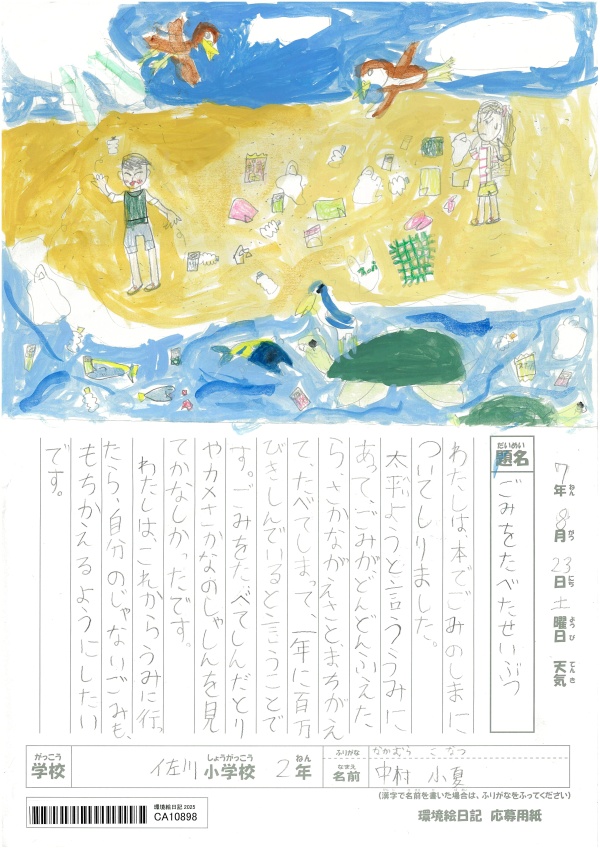 7年8月23日土曜日 天気
ねん がつ にち ようび てんき
だいめい
題名 ごみをたべたせいぶつ
わたしは、本でごみのしまに
ついてしりました。
太平ようと言ううみに
あって、ごみがどんどんふえた
ら、さかながえさとまちがえ
て、たべてしまって、一年に百万
びきしんでいると言うことで
す。ごみをたべてしんだとり
やカメさかなのしゃしんを見
てかなしかったです。
わたしは、これからうみに行っ
たら、自分のじゃないごみも、
もちかえるようにしたい
です。
がっこう しょうがっこう ねん
学校 佐川小学校 2年
ふりがな なかむら こなつ
なまえ
名前 中村 小夏
(漢字で名前を書いた場合は、ふりがなをふってください)
環境絵日記 2025
CA10898
環境絵日記 応募用紙